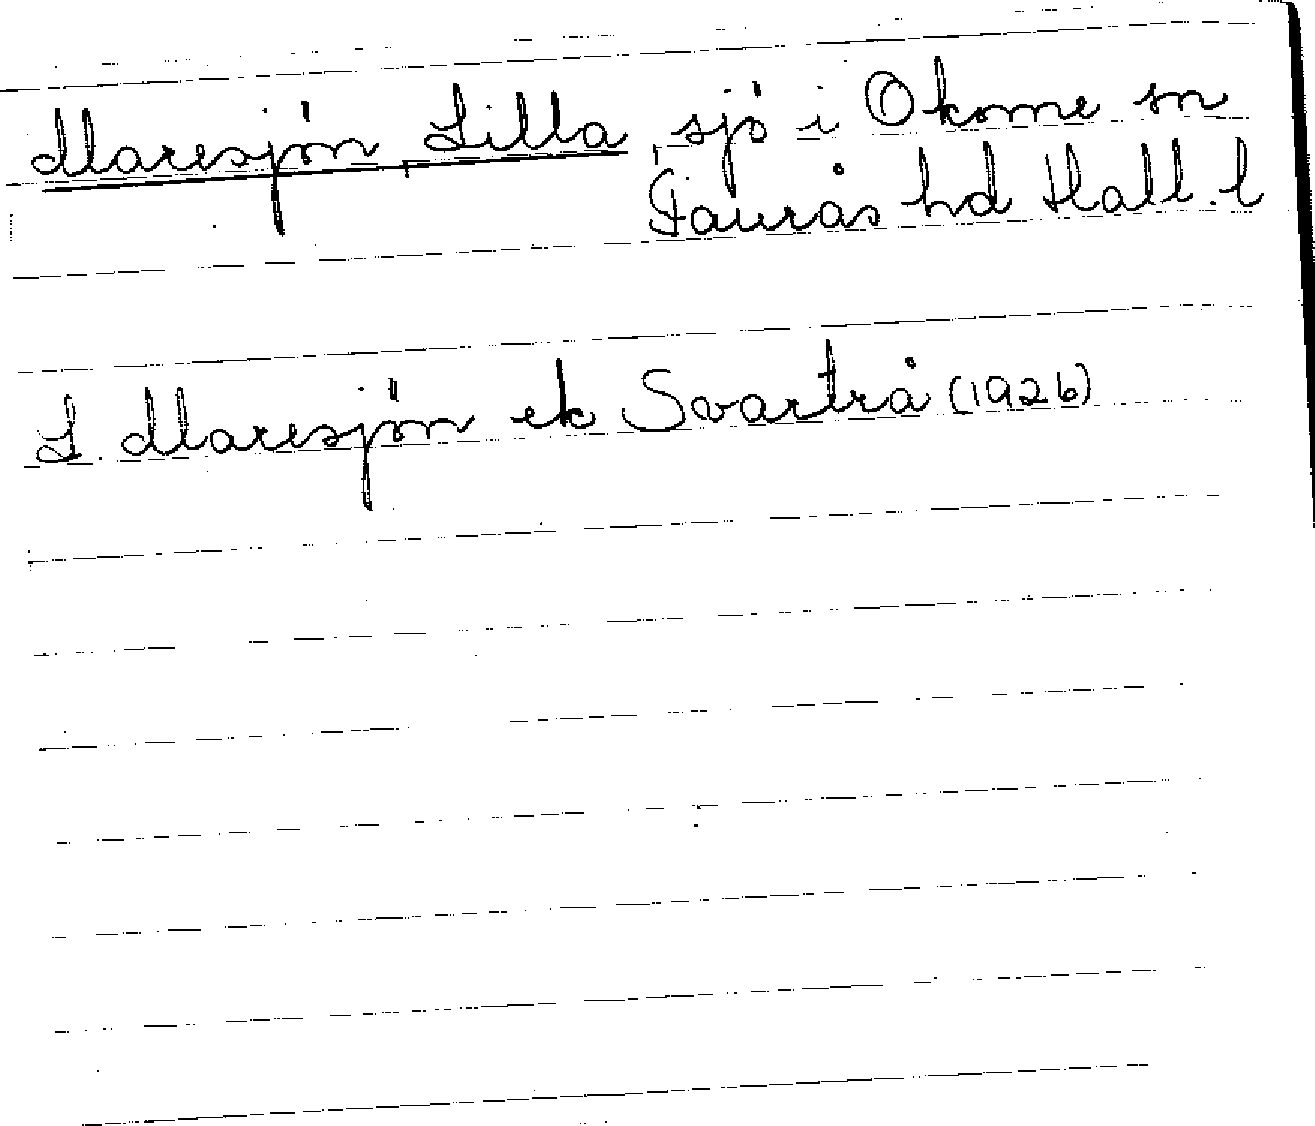 Maresjön, Lilla, sjö i Okome sn
Faurås hd Hall. l
L. Maresjön ek Svartrå (1926)